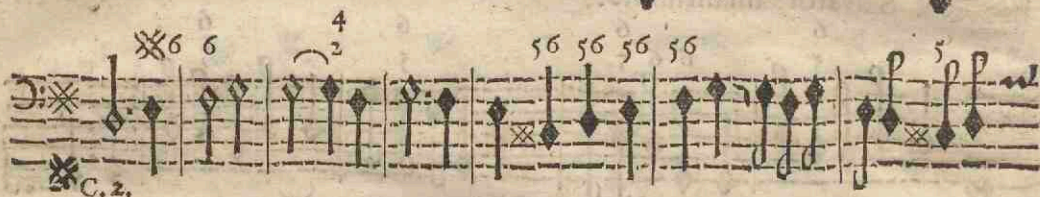 4
6 6 2 56 56 56 56 5
C. 2.